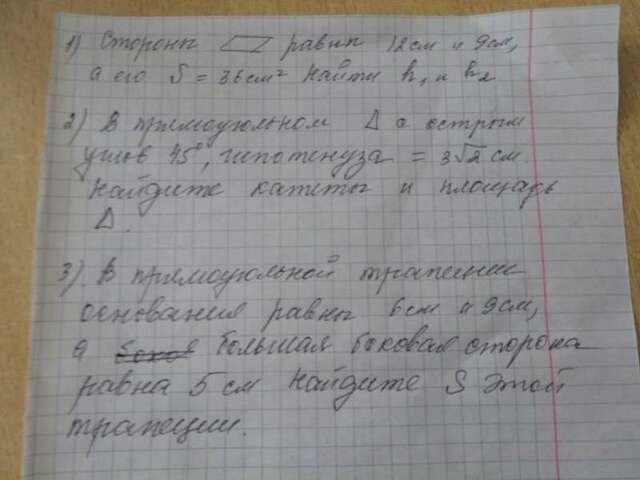 1) Стороны ▱ равны 12 см и 9 см,
а его S = 36 см² Найти h₁ и h₂
2) В прямоугольном Δ с острым
углов 45°, гипотенуза = 3√2 см.
Найдите катеты и площадь
Δ.
3) В прямоугольной трапеции
основания равны 6 см и 9 см,
а большая боковая сторона
равна 5 см Найдите S этой
трапеции.